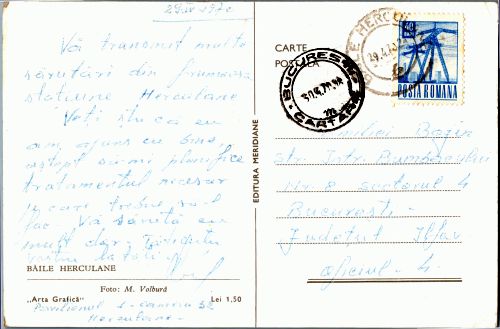 29.IV.1970
Vă transmit multe
sărutări din frumoasa
stațiune Herculane
Veți ști că eu
am ajuns cu bine,
aștept să-mi planifice
tratamentul necesar
pe care trebue să-l
fac. Vă sărută cu
mult dor,
BĂILE HERCULANE
Foto: M. Volbură
„Arta Grafică" Lei 1,50
Pavilionul 1 - camera
Herculane
EDITURA MERIDIANE
CARTE
POȘTALĂ
BUCUREȘTI
CARTARE
BĂILE HERCULANE
29.4.70
POSTA ROMANA
Familiei
Str. Intr.
Nr 8 sectorul 4
București
Județul Ilfov
Oficiul 4